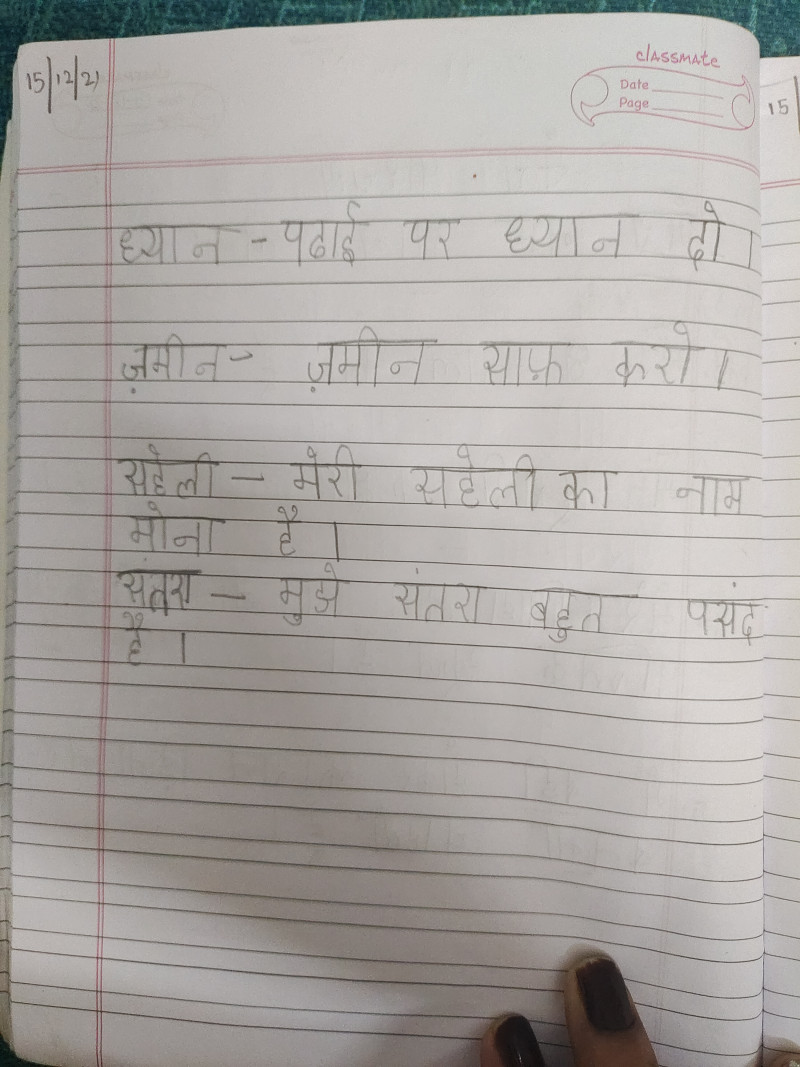 15/12/21
classmate
Date
Page
15
ध्यान - पढाई पर ध्यान दो।
ज़मीन - ज़मीन साफ़ करो।
सहेली - मेरी सहेली का नाम
मोना है।
संतरा - मुझे संतरा बहुत पसंद
है।